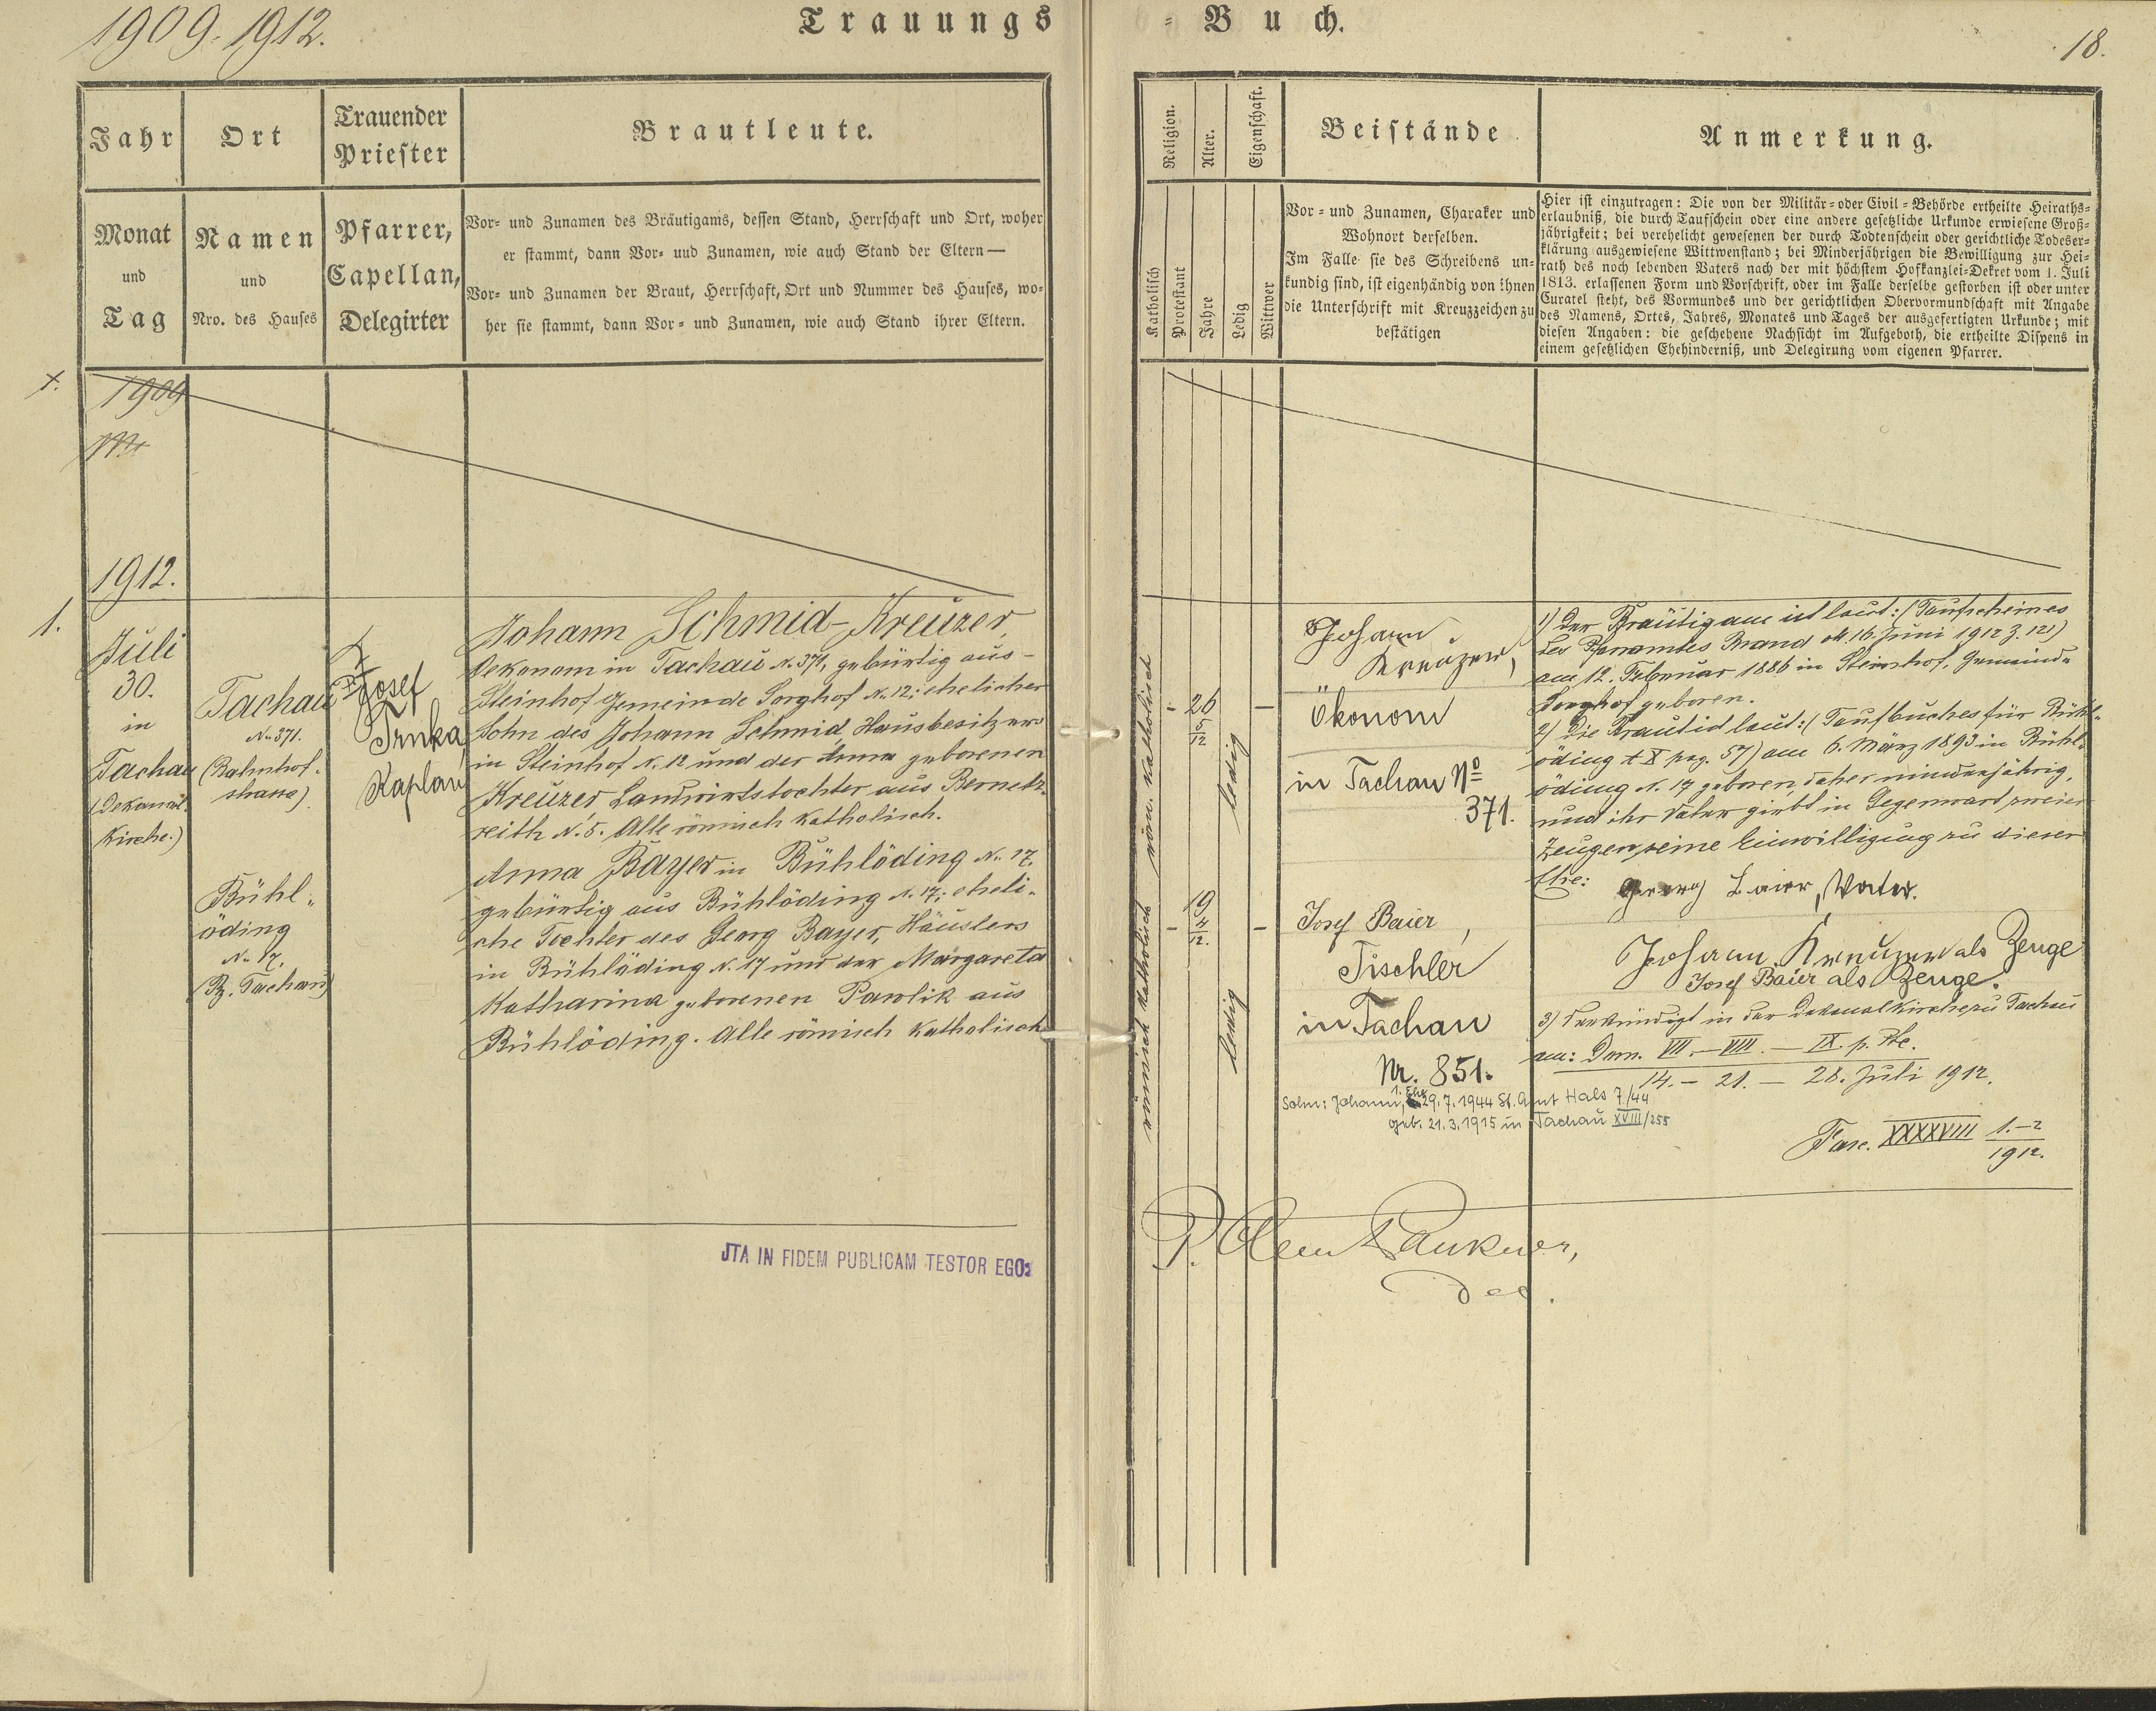 1909-1912.
Trauungs-Buch.
18.
Jahr
Monat
und
Tag
Ort
Namen
und
Nro. des Hauses
Trauender
Priester
Pfarrer,
Capellan,
Delegirter
Brautleute.
Vor- und Zunamen des Bräutigams, dessen Stand, Herrschaft und Ort, woher
er stammt, dann Vor- und Zunamen, wie auch Stand der Eltern —
Vor- und Zunamen der Braut, Herrschaft, Ort und Nummer des Hauses, wo-
her sie stammt, dann Vor- und Zunamen, wie auch Stand ihrer Eltern.
Religion.
Katholisch
Protestant
Alter.
Jahre
Eigenschaft.
Ledig
Wittwer
Beistände
Vor- und Zunamen, Charakter und
Wohnort derselben.
Im Falle sie des Schreibens un-
kundig sind, ist eigenhändig von ihnen
die Unterschrift mit Kreuzzeichen zu
bestätigen
Anmerkung.
Hier ist einzutragen: Die von der Militär- oder Civil-Behörde ertheilte Heiraths-
erlaubniß, die durch Taufschein oder eine andere gesetzliche Urkunde erwiesene Groß-
jährigkeit; bei verehelicht gewesenen der durch Todtenschein oder gerichtliche Todeser-
klärung ausgewiesene Wittwenstand; bei Minderjährigen die Bewilligung zur Hei-
rath des noch lebenden Vaters nach der mit höchstem Hofkanzlei-Dekret vom 1. Juli
1813. erlassenen Form und Vorschrift, oder im Falle derselbe gestorben ist oder unter
Curatel steht, des Vormundes und der gerichtlichen Obervormundschaft mit Angabe
des Namens, Ortes, Jahres, Monates und Tages der ausgefertigten Urkunde; mit
diesen Angaben: die geschehene Nachsicht im Aufgeboth, die ertheilte Dispens in
einem gesetzlichen Ehehinderniß, und Delegirung vom eigenen Pfarrer.
1909
1912.
1.
Juli
30.
in
Tachau
(Dekanal-
Kirche.)
Tachau
N. 371.
(Bahnhof-
strasse)
Bühl-
öding
N. 17.
(Bz. Tachau)
Josef
Trnka,
Kaplan
Johann Schmid-Kreuzer,
Oekonom in Tachau N. 371, gebürtig aus
Steinhof Gemeinde Sorghof N. 12; ehelicher
Sohn des Johann Schmid Hausbesitzers
in Steinhof N. 12 und der Anna geborenen
Kreuzer Landwirtstochter aus Bernetz-
reith N. 5. Alle römisch katholisch.
Anna Bayer in Bühlöding N. 17.
gebürtig aus Bühlöding N. 17; eheli-
che Tochter des Georg Bayer, Häuslers
in Bühlöding N. 17 und der Margareta
Katharina geborenen Pawlik aus
Bühlöding. Alle römisch katholisch
JTA IN FIDEM PUBLICAM TESTOR EGO:
röm. katholisch
- 26 5/12 -
ledig
römisch katholisch
- 19 4/12. -
ledig
Johann
Kreuzer,
Ökonom
in Tachau No
371.
Josef Baier,
Tischler
in Tachau
Nr. 851.
1. Ehe
Sohn: Johann, 29.7.1944 St. Amt Hals 7/44
geb. 21.3.1915 in Tachau XVIII/255
1) Der Bräutigam ist laut: (Taufscheines
des Pfarramtes Brand dt. 16. Juni 1912 Z. 121)
am 12. Februar 1886 in Steinhof, Gemeinde
Sorghof geboren.
2) Die Braut ist laut: (Taufbuches für Bühl-
öding t. X pag. 57) am 6. März 1893 in Bühl-
öding N. 17 geboren, daher minderjährig,
und ihr Vater giebt in Gegenwart zweier
Zeugen seine Einwilligung zu dieser
Ehe:
Georg Baier, Vater.
Johann Kreuzer als Zeuge
Josef Baier als Zeuge.
3) Verkündigt in der Dekanalkirche zu Tachau
am: Dom. VII. - VIII. - IX. p. Pte.
14. - 21. - 28. Juli 1912.
Fasc. XXXXVIII 1.-2
1912.
P. Clem
Dec.